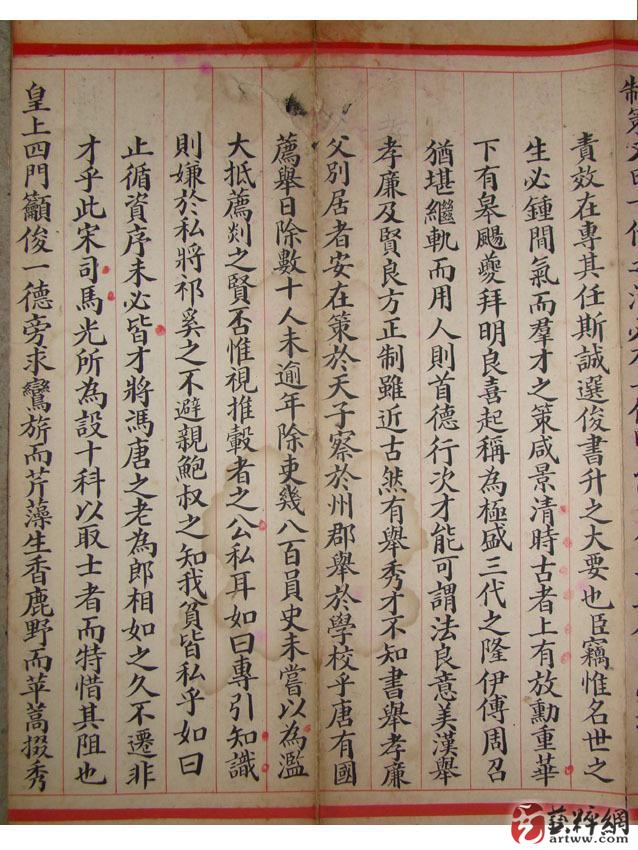 責效在專其任斯誠選俊書升之大要也臣竊惟名世之
生必鍾間氣而羣才之策咸景清時古者上有放勳重華
下有皋颺夔拜明良喜起稱為極盛三代之隆伊傅周召
猶堪繼軌而用人則首德行次才能可謂法良意美漢舉
孝廉及賢良方正制雖近古然有舉秀才不知書舉孝廉
父別居者安在策於天子察於州郡舉於學校乎唐有國
薦舉日除數十人未逾年除吏幾八百員史未嘗以為濫
大抵薦剡之賢否惟視推轂者之公私耳如曰專引知識
則嫌於私將祁奚之不避親鮑叔之知我貧皆私乎如曰
止循資序未必皆才將馮唐之老為郎相如之久不遷非
才乎此宋司馬光所為設十科以取士者而特惜其阻也
皇上四門籲俊一德旁求鸞旂而芹藻生香鹿野而苹蒿掇秀
藝粹網
artww.com